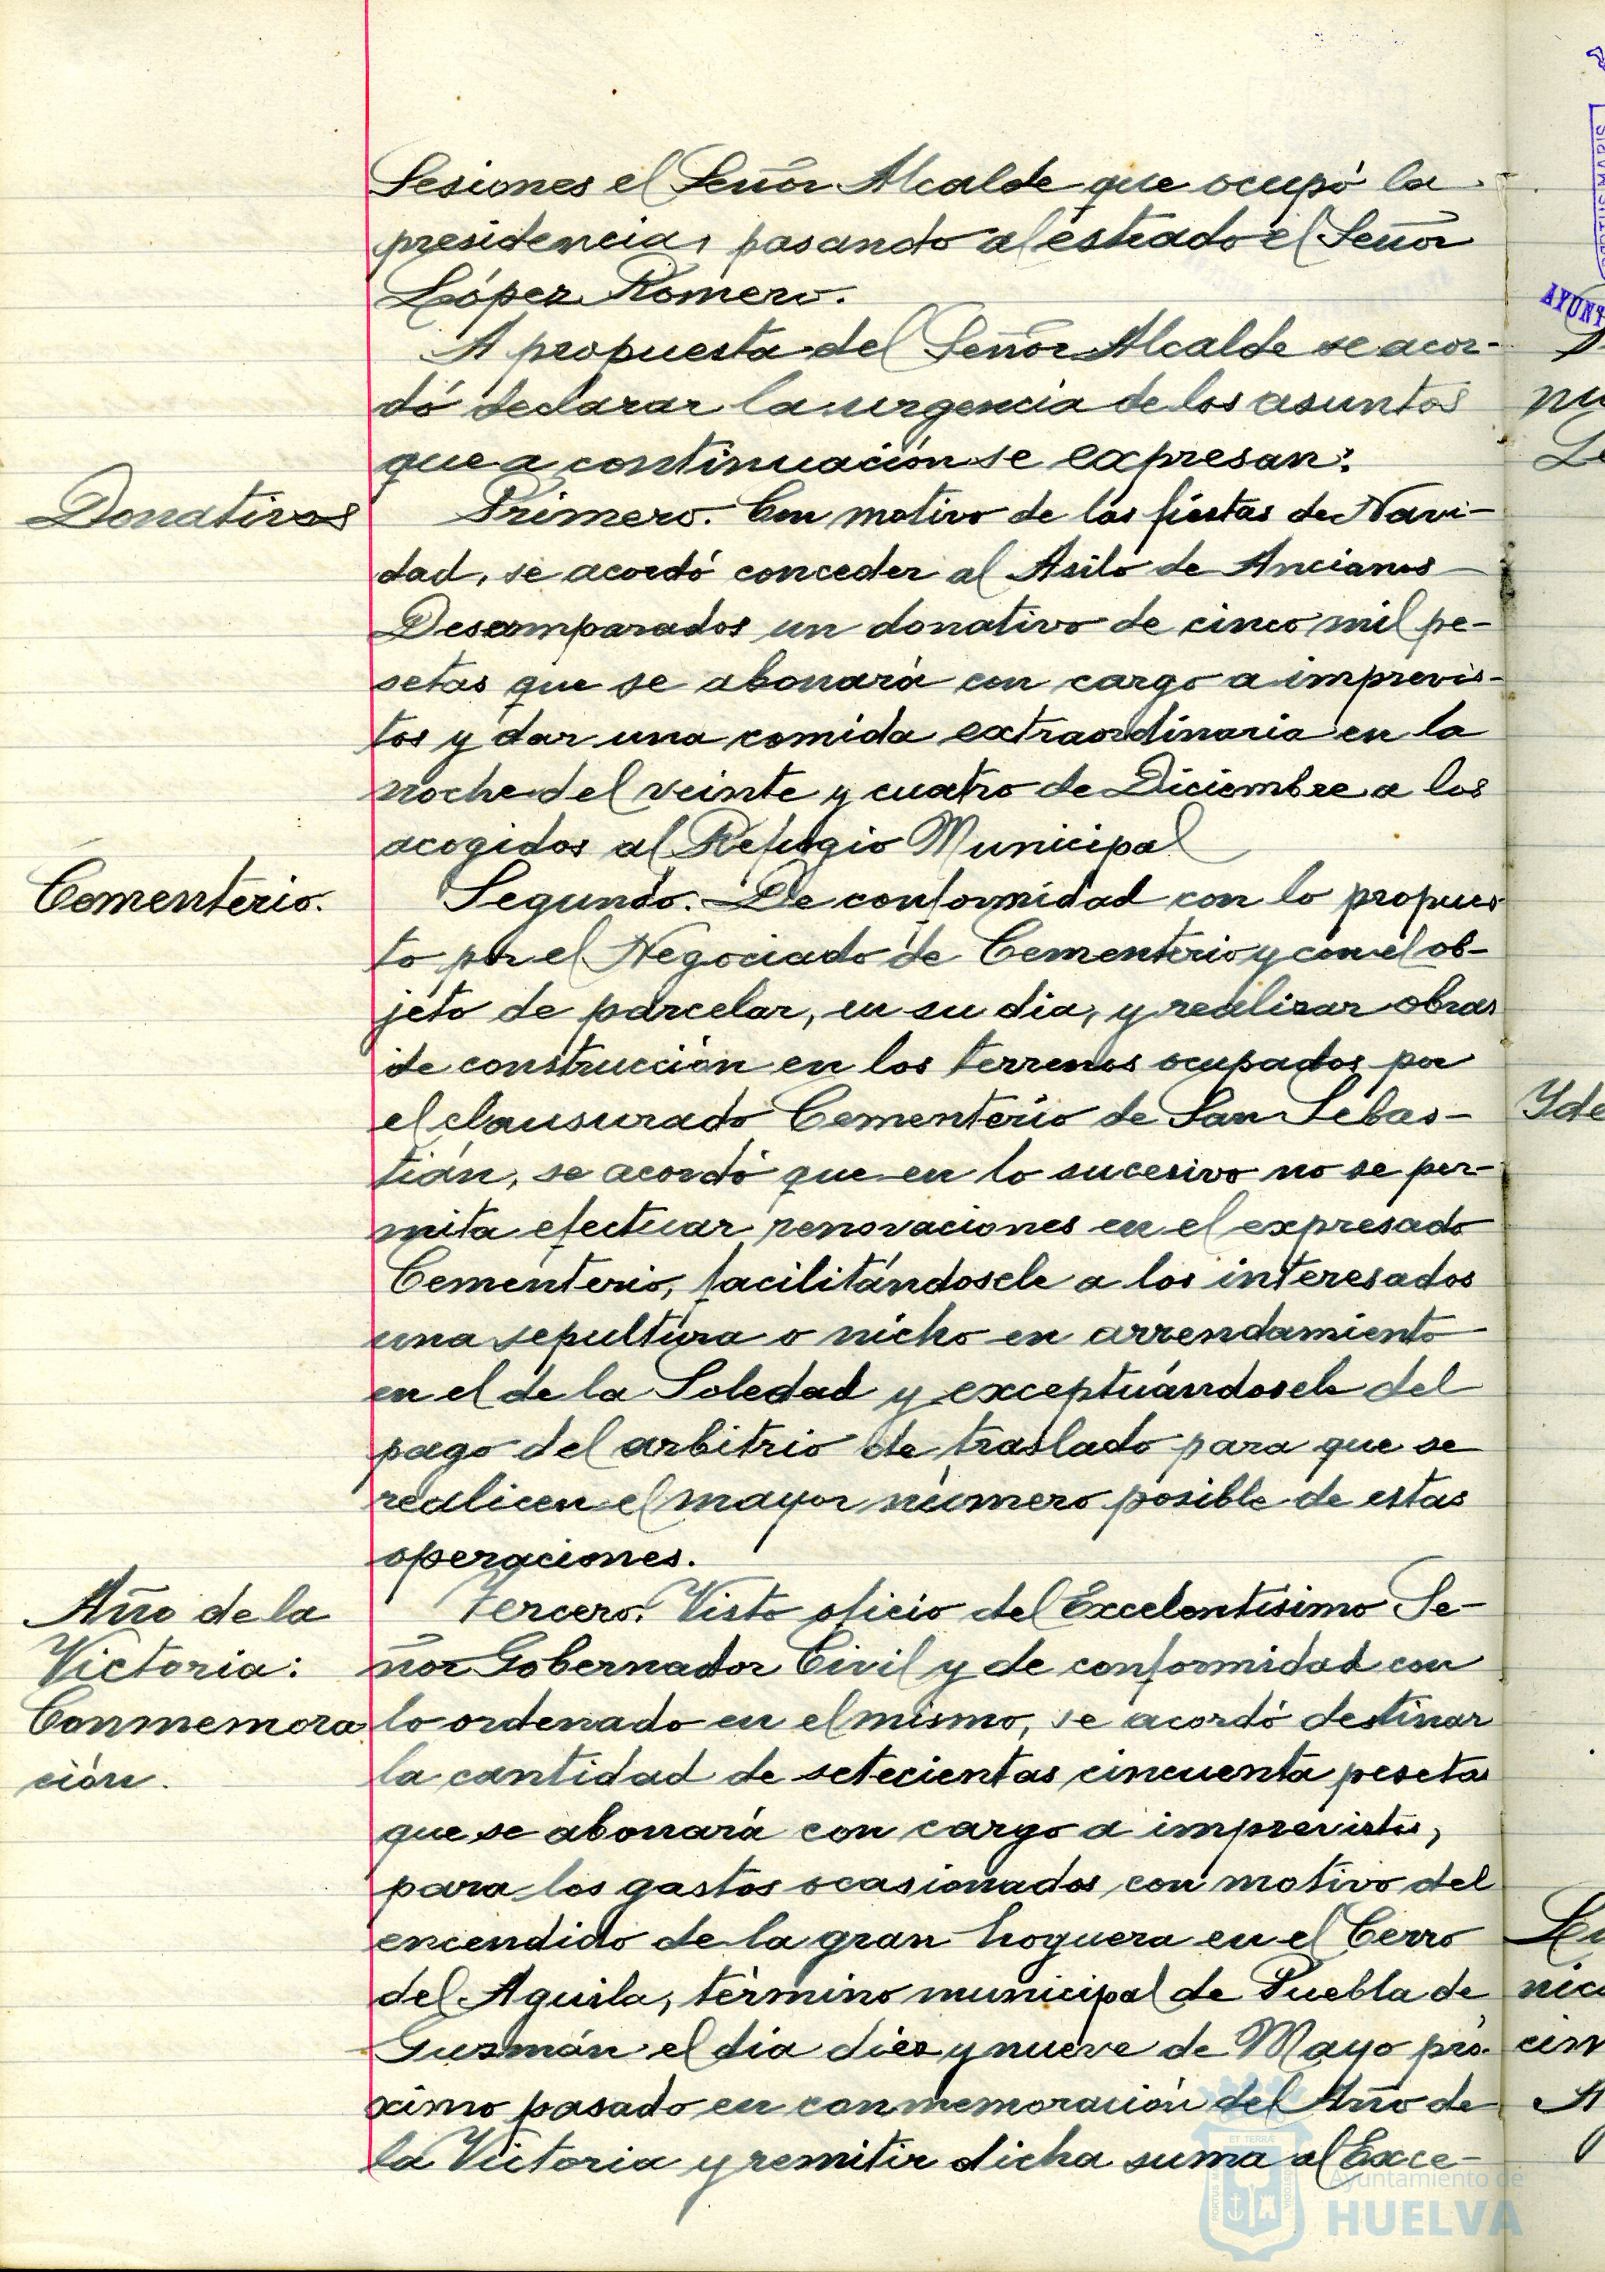 Sesiones el Señor Alcalde que ocupó la
presidencia, pasando al estrado el Señor
López Romero.
A propuesta del Señor Alcalde se acor-
dó declarar la urgencia de los asuntos
que a continuación se expresan:
Donativos
Primero. Con motivo de las fiestas de Navi-
dad, se acordó conceder al Asilo de Ancianos
Desamparados un donativo de cinco mil pe-
setas que se abonará con cargo a imprevis-
tos y dar una comida extraordinaria en la
noche del veinte y cuatro de Diciembre a los
acogidos al Refugio Municipal
Cementerio.
Segundo. De conformidad con lo propues-
to por el Negociado de Cementerio y con el ob-
jeto de parcelar, en su dia, y realizar obras
de construcción en los terrenos ocupados por
el clausurado Cementerio de San Sebas-
tián, se acordó que en lo sucesivo no se per-
mita efectuar renovaciones en el expresado
Cementerio, facilitándosele a los interesados
una sepultura o nicho en arrendamiento
en el de la Soledad y exceptuándosele del
pago del arbitrio de traslado para que se
realicen el mayor número posible de estas
operaciones.
Año de la
Victoria:
Conmemora
ción.
Tercero. Visto oficio del Excelentísimo Se-
ñor Gobernador Civil y de conformidad con
lo ordenado en el mismo, se acordó destinar
la cantidad de setecientas cincuenta pesetas
que se abonará con cargo a imprevistos,
para los gastos ocasionados con motivo del
encendido de la gran hoguera en el Cerro
del Aguila, término municipal de Puebla de
Guzmán el dia diez y nueve de Mayo pró-
ximo pasado en conmemoración del Año de
la Victoria y remitir dicha suma al Exce-
PORTUS MARIS
ET TERRÆ
CUSTODIA
Ayuntamiento de
HUELVA